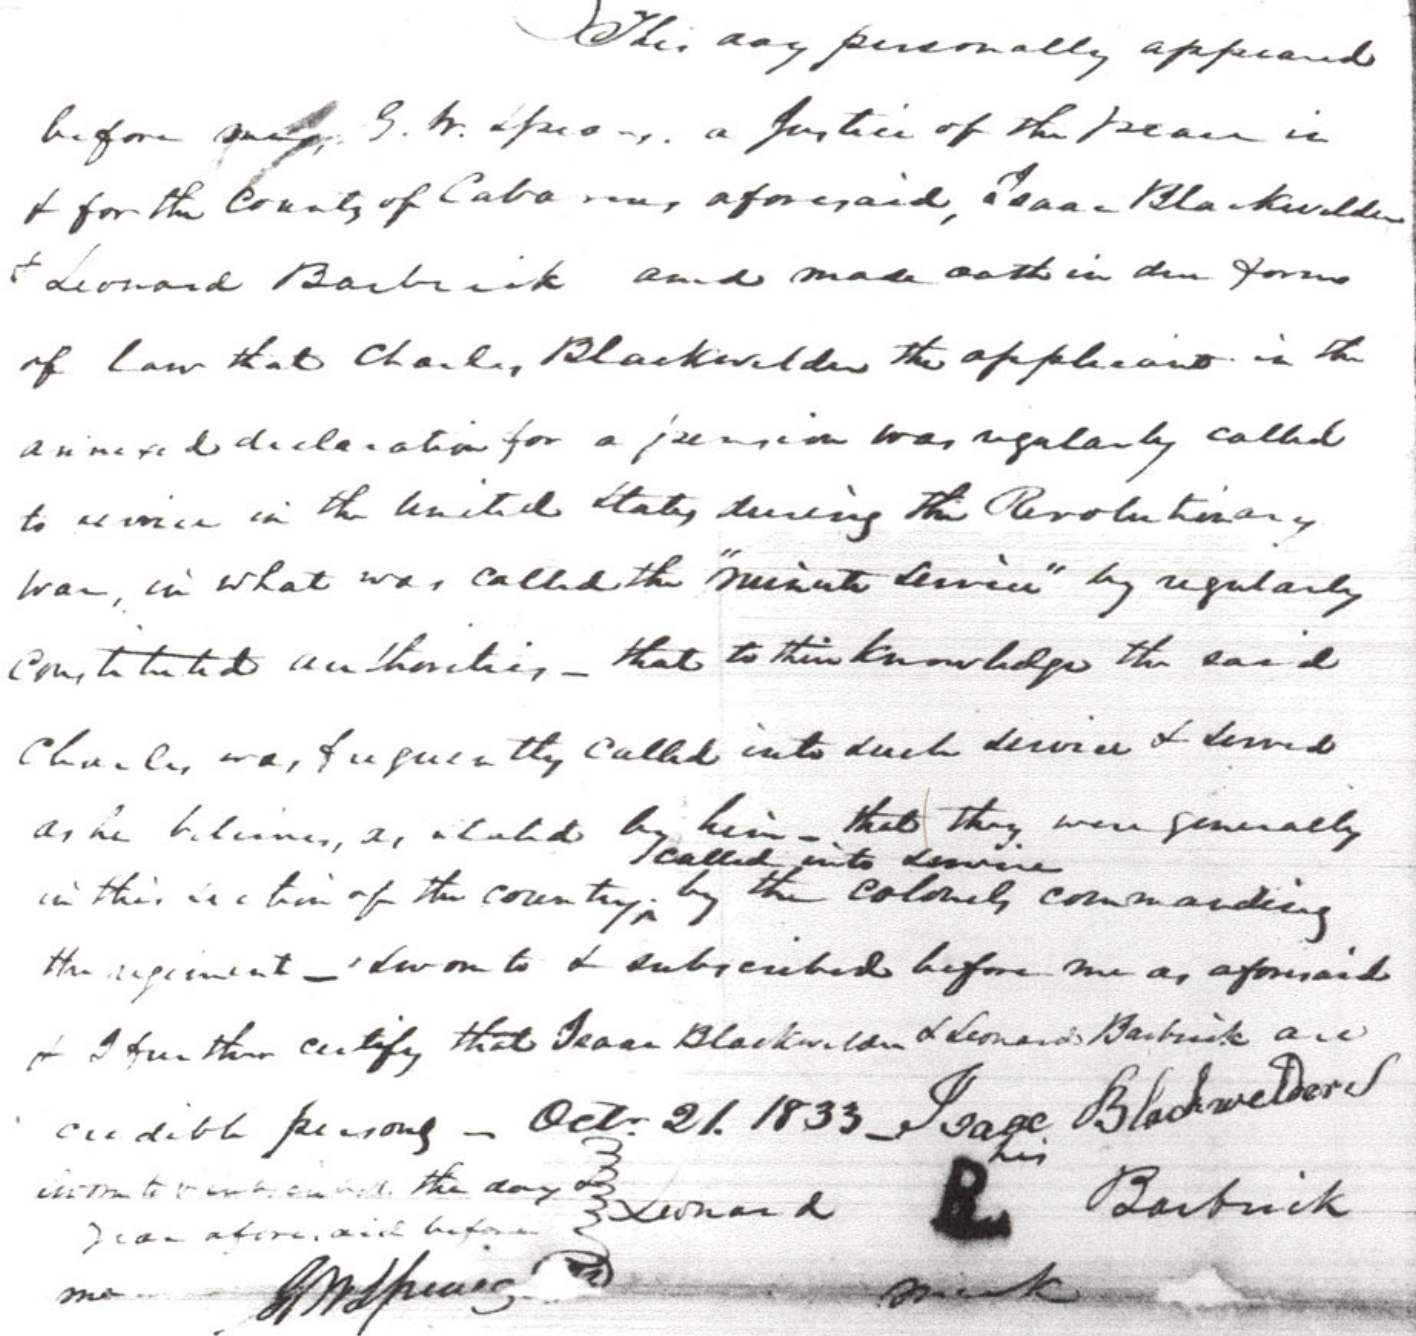 This day personally appeared
before me, G. W. Spears, a Justice of the Peace in
& for the County of Cabarrus aforesaid, Isaac Blackwelder
& Leonard Barbrick and made oath in due form
of law that Charles Blackwelder the applicant in the
annexed declaration for a pension was regularly called
to service in the United States during the Revolutionary
War, in what was called the "minute service" by regularly
constituted authorities – that to their knowledge the said
Charles was frequently called into such service & served
as he believes, as stated by him – that they were generally
called into service
in this section of the country, by the colonels commanding
the regiment – sworn to & subscribed before me as aforesaid
& I further certify that Isaac Blackwelder & Leonard Barbrick are
credible persons – Octr. 21. 1833 – Isaac Blackwelder
his
sworn to & subscribed the day &
Leonard B Barbrick
year aforesaid before
me G W Spears JP
mark